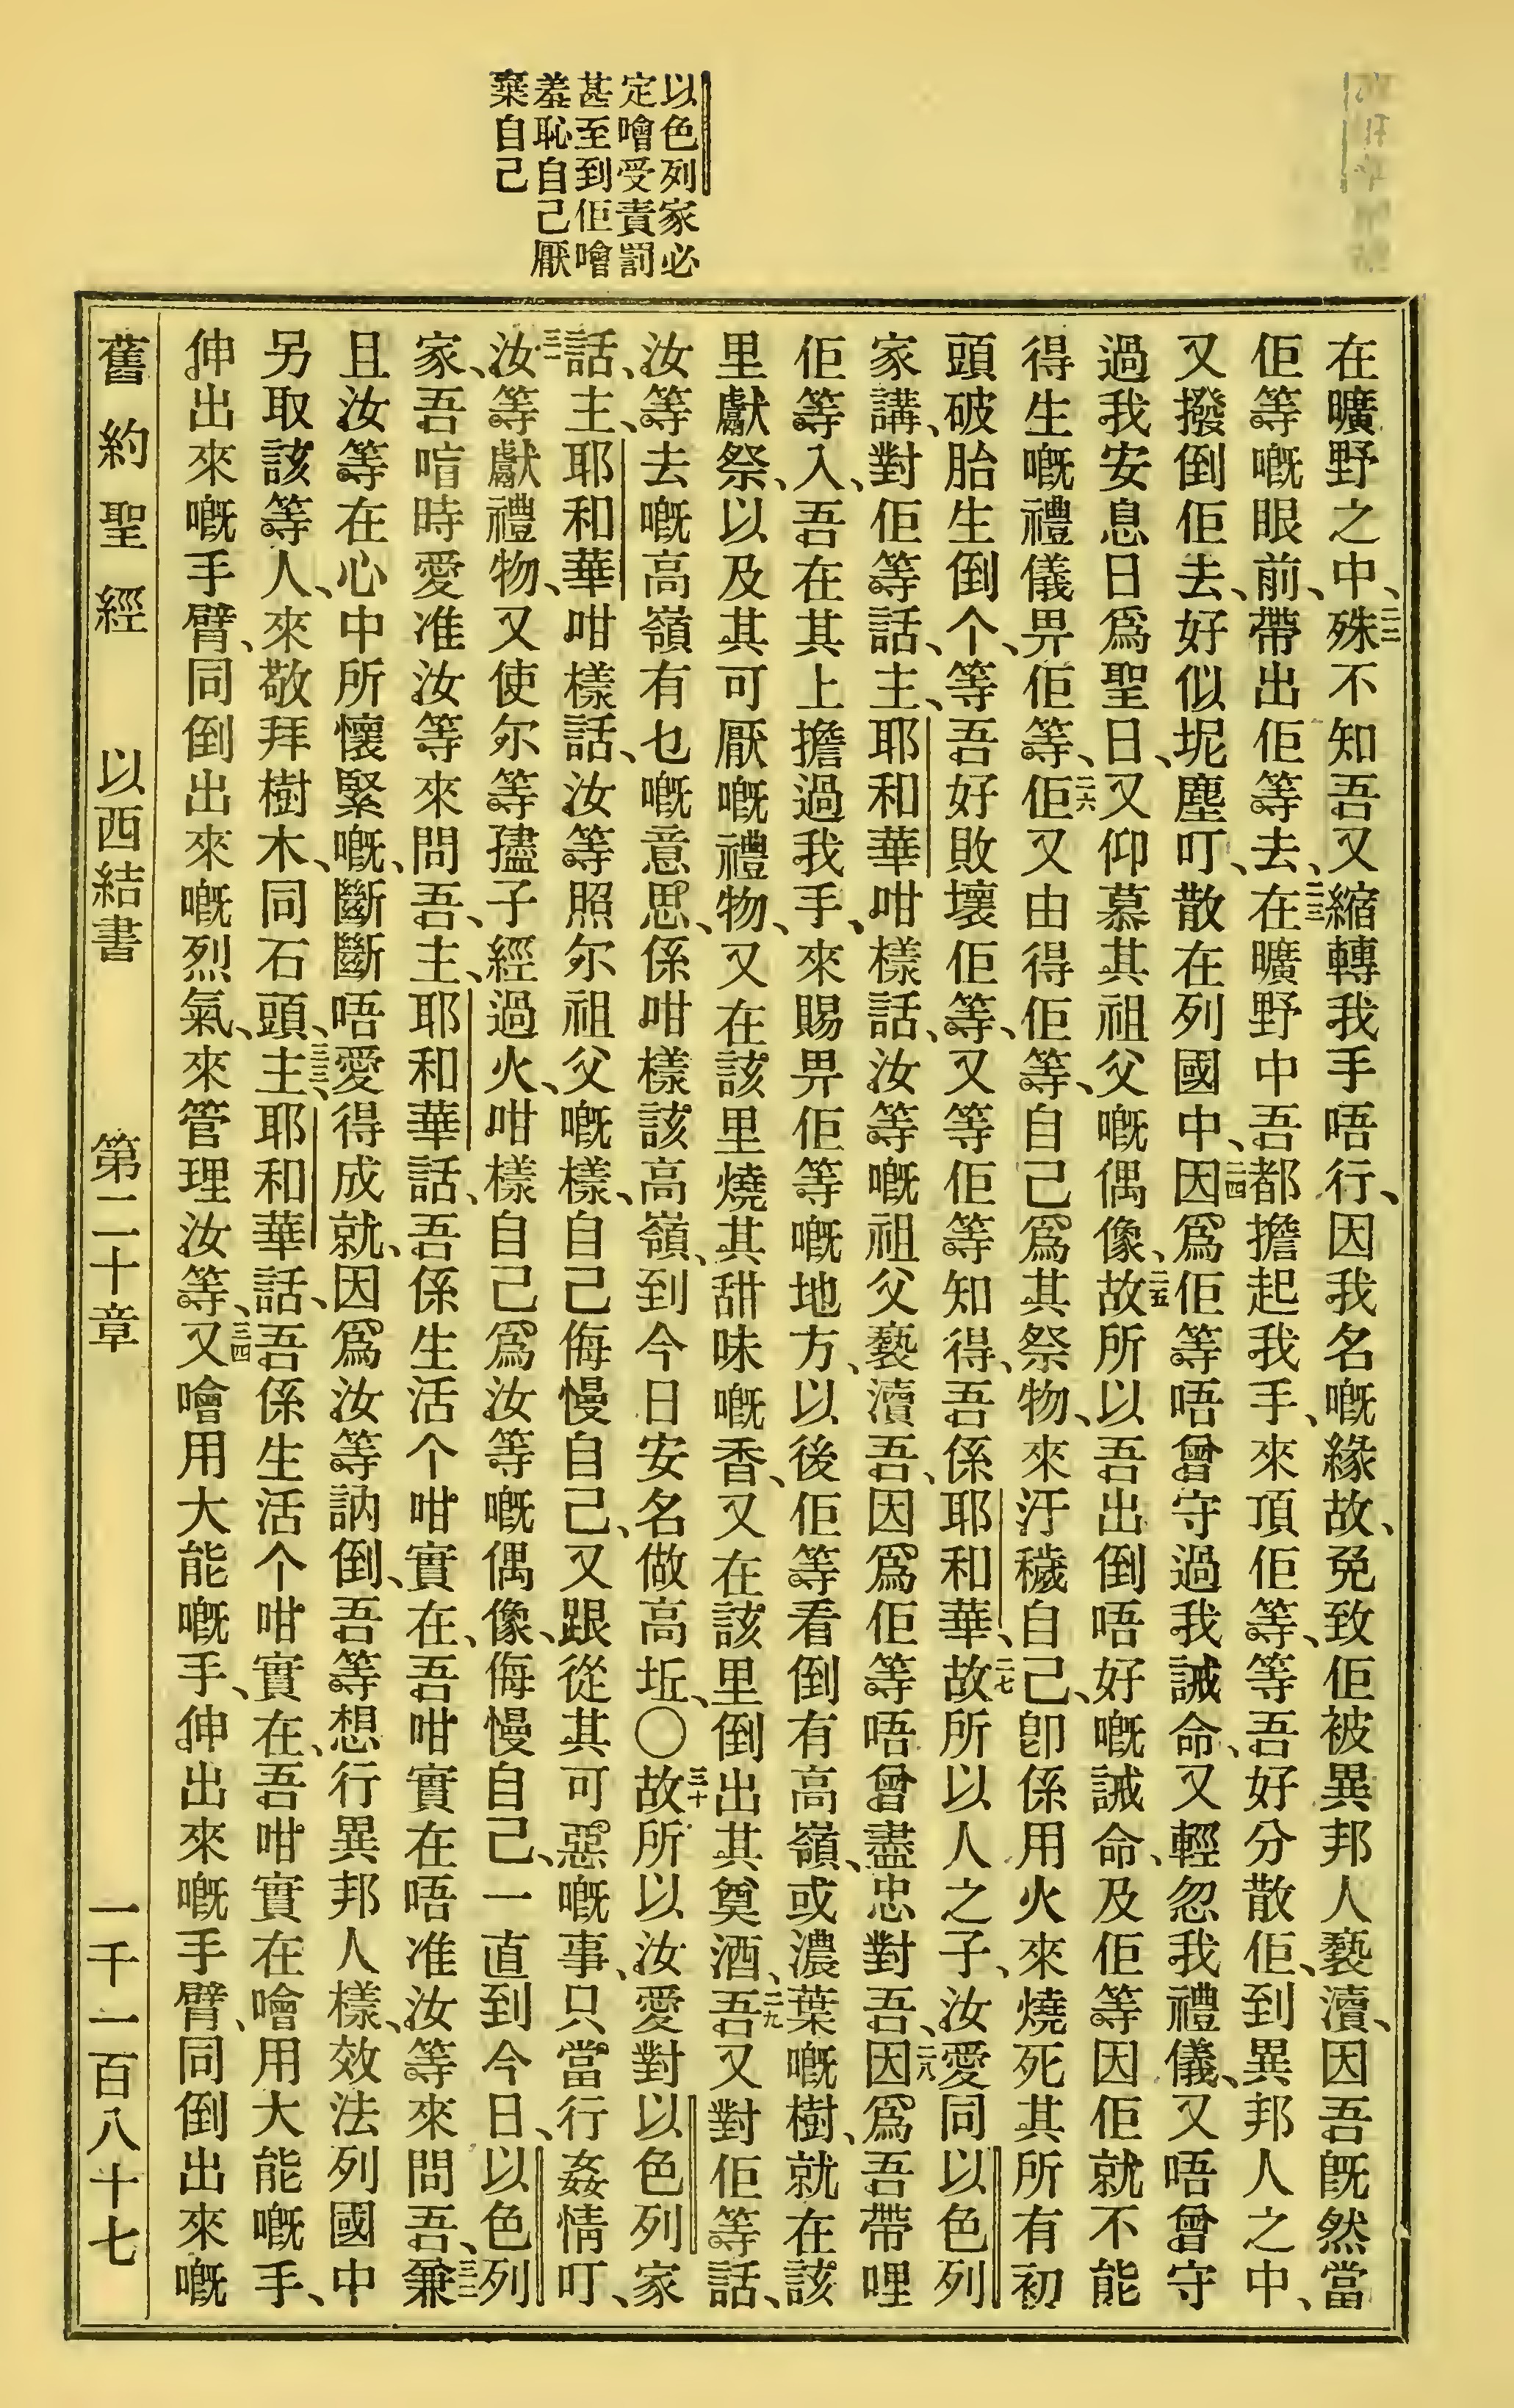 以色列家必
定噲受責罰
甚至到佢噲
羞恥自己厭
棄自己
在曠野之中、二二殊不知吾又縮轉我手唔行、因我名嘅緣故、免致佢被異邦人褻瀆、因吾旣然當
佢等嘅眼前、帶出佢等去、二三在曠野中吾都擔起我手、來頂佢等、等吾好分散佢、到異邦人之中、
又撥倒佢去、好似坭塵叮、散在列國中、二四因爲佢等唔曾守過我誡命、又輕忽我禮儀、又唔曾守
過我安息日爲聖日、又仰慕其祖父嘅偶像、二五故所以吾出倒唔好嘅誡命、及佢等因佢就不能
得生嘅禮儀畀佢等、二六佢又由得佢等、自己爲其祭物、來汙穢自己、卽係用火來燒死其所有初
頭破胎生倒个、等吾好敗壞佢等、又等佢等知得、吾係耶和華、二七故所以人之子、汝愛同以色列
家講、對佢等話、主、耶和華咁樣話、汝等嘅祖父褻瀆吾、因爲佢等唔曾盡忠對吾、二八因爲吾帶哩
佢等入、吾在其上擔過我手、來賜畀佢等嘅地方、以後佢等看倒有高嶺、或濃葉嘅樹、就在該
里獻祭、以及其可厭嘅禮物、又在該里燒其甜味嘅香、又在該里倒出其奠酒、二九吾又對佢等話、
汝等去嘅高嶺有乜嘅意思、係咁樣該高嶺、到今日安名做高坵、〇三十故所以汝愛對以色列家
話、主、耶和華咁樣話、汝等照尔祖父嘅樣、自己侮慢自己、又跟從其可惡嘅事、只當行姦情叮、
三一汝等獻禮物、又使尔等孻子經過火、咁樣自己爲汝等嘅偶像、侮慢自己、一直到今日、以色列
家、吾喑時愛准汝等來問吾、主、耶和華話、吾係生活个咁實在、吾咁實在唔准汝等來問吾、三二兼
且汝等在心中所懷緊嘅、斷斷唔愛得成就、因爲汝等訥倒、吾等想行異邦人樣、效法列國中
另取該等人、來敬拜樹木、同石頭、三三主耶和華話、吾係生活个咁實在、吾咁實在噲用大能嘅手、
伸出來嘅手臂、同倒出來嘅烈氣、來管理汝等、三四又噲用大能嘅手、伸出來嘅手臂、同倒出來嘅
舊約聖經 以西結書 第二十章 一千一百八十七